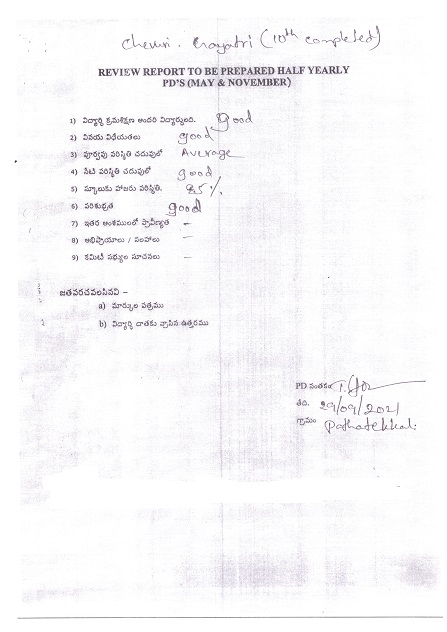 Gayatri (10th completed)
REVIEW REPORT TO BE PREPARED HALF YEARLY
PD'S (MAY & NOVEMBER)
1) విద్యార్థి క్రమశిక్షణ అందరి విద్యార్థులది. good
2) వినయ విధేయతలు good
3) పూర్వపు పరిస్థితి చదువులో Average
4) నేటి పరిస్థితి చదువులో good
5) స్కూలుకు హాజరు పరిస్థితి. 85%
6) పరిశుభ్రత good
7) ఇతర అంశములలో ప్రావీణ్యత –
8) అభిప్రాయాలు / సలహాలు –
9) కమిటీ సభ్యుల సూచనలు –
జతపరచవలసినవి –
a) మార్కుల పత్రము
b) విద్యార్థి దాతకు వ్రాసిన ఉత్తరము
PD సంతకం
తేది. 29/09/2021
గ్రామం Pathatekkali